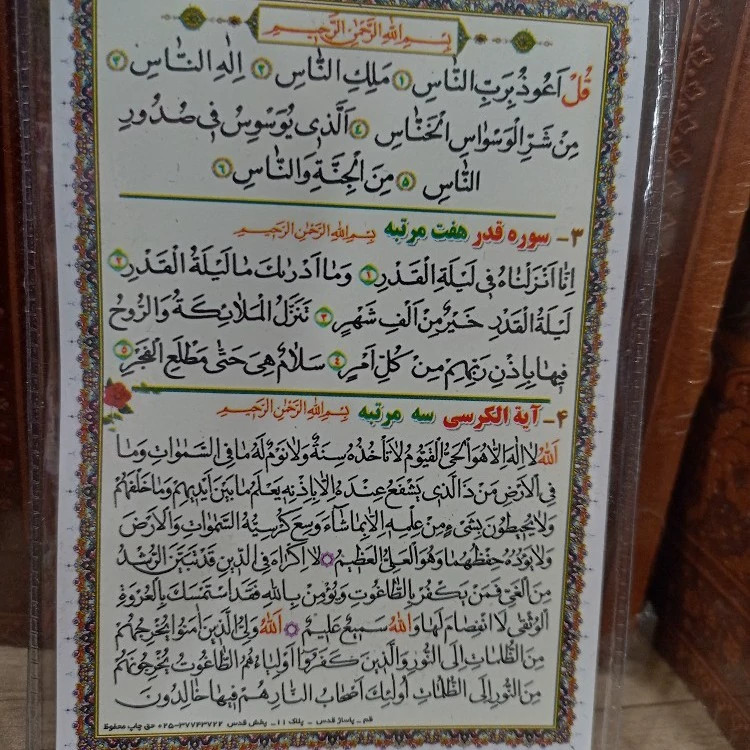 بِسْمِ اللهِ الرَّحْمٰنِ الرَّحِيمِ
قُلْ اَعُوذُ بِرَبِّ النَّاسِ ۱ مَلِكِ النَّاسِ ۲ اِلٰهِ النَّاسِ ۳
مِنْ شَرِّ الْوَسْوَاسِ الْخَنَّاسِ ۴ اَلَّذى يُوَسْوِسُ فى صُدُورِ
النَّاسِ ۵ مِنَ الْجِنَّةِ وَالنَّاسِ ۶
۳- سوره قدر هفت مرتبه بِسْمِ اللهِ الرَّحْمٰنِ الرَّحِيمِ
اِنَّا اَنْزَلْنَاهُ فى لَيْلَةِ الْقَدْرِ ۱ وَمَا اَدْرٰيكَ مَا لَيْلَةُ الْقَدْرِ ۲
لَيْلَةُ الْقَدْرِ خَيْرٌ مِنْ اَلْفِ شَهْرٍ ۳ تَنَزَّلُ الْمَلَائِكَةُ وَالرُّوحُ
فيهَا بِاِذْنِ رَبِّهِمْ مِنْ كُلِّ اَمْرٍ ۴ سَلَامٌ هِىَ حَتّٰى مَطْلَعِ الْفَجْرِ ۵
۴- آیة الکرسی سه مرتبه بِسْمِ اللهِ الرَّحْمٰنِ الرَّحِيمِ
اَللهُ لَا اِلٰهَ اِلَّا هُوَ الْحَىُّ الْقَيُّومُ لَا تَأْخُذُهُ سِنَةٌ وَلَا نَوْمٌ لَهُ مَا فِى السَّمٰوَاتِ وَمَا
فِى الْاَرْضِ مَنْ ذَا الَّذى يَشْفَعُ عِنْدَهُ اِلَّا بِاِذْنِهِ يَعْلَمُ مَا بَيْنَ اَيْديهِمْ وَمَا خَلْفَهُمْ
وَلَا يُحيطُونَ بِشَىْءٍ مِنْ عِلْمِهِ اِلَّا بِمَا شَاءَ وَسِعَ كُرْسِيُّهُ السَّمٰوَاتِ وَالْاَرْضَ
وَلَا يَؤُدُهُ حِفْظُهُمَا وَهُوَ الْعَلِىُّ الْعَظيمُ لَا اِكْرَاهَ فِى الدّينِ قَدْ تَبَيَّنَ الرُّشْدُ
مِنَ الْغَىِّ فَمَنْ يَكْفُرْ بِالطَّاغُوتِ وَيُؤْمِنْ بِاللهِ فَقَدِ اسْتَمْسَكَ بِالْعُرْوَةِ
الْوُثْقٰى لَا انْفِصَامَ لَهَا وَاللهُ سَميعٌ عَليمٌ اَللهُ وَلِىُّ الَّذينَ اٰمَنُوا يُخْرِجُهُمْ
مِنَ الظُّلُمَاتِ اِلَى النُّورِ وَالَّذينَ كَفَرُوا اَوْلِيَاءُهُمُ الطَّاغُوتُ يُخْرِجُونَهُمْ
مِنَ النُّورِ اِلَى الظُّلُمَاتِ اُولٰئِكَ اَصْحَابُ النَّارِ هُمْ فيهَا خَالِدُونَ
قم - پاساژ قدس - پلاک ۱۱ - پخش قدس ۳۷۷۴۳۷۲۲-۰۲۵ حق چاپ محفوظ